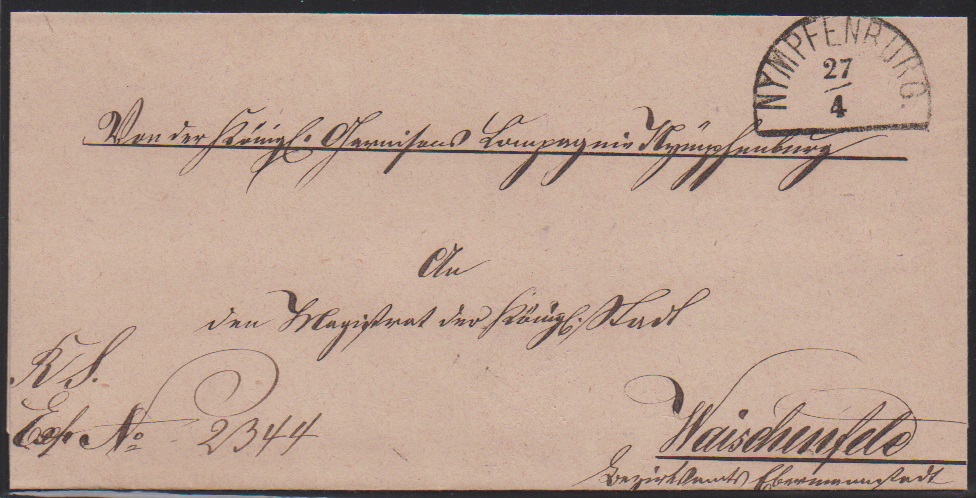 NYMPFENBURG.
27
4
Von der Königl. Garnisons Compagnie Nÿmphenburg
An
den Magistrat der Königl. Stadt
K S.
Exp. No 2344
Waischenfeld
Bezirksamts Ebermannstadt